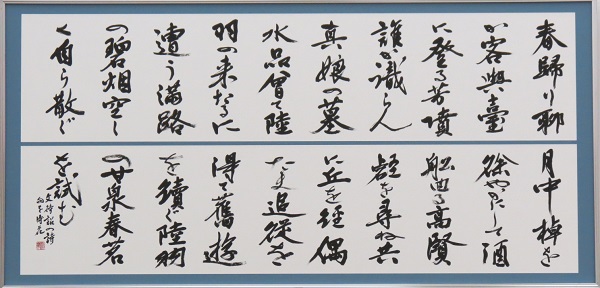 春歸り聊
か容與臺
に登る芳墳
誰か識らん
真娘の墓
水品曾て陸
羽の来るに
遭う滿路
の碧烟空し
く自ら散ず
月中棹を
徐やかにして酒
船回る高賢
を尋ね共
に丘を経偶
たま追従を
得て舊遊
を續ぐ陸羽
の甘泉春茗
を試む
文徴明の詩